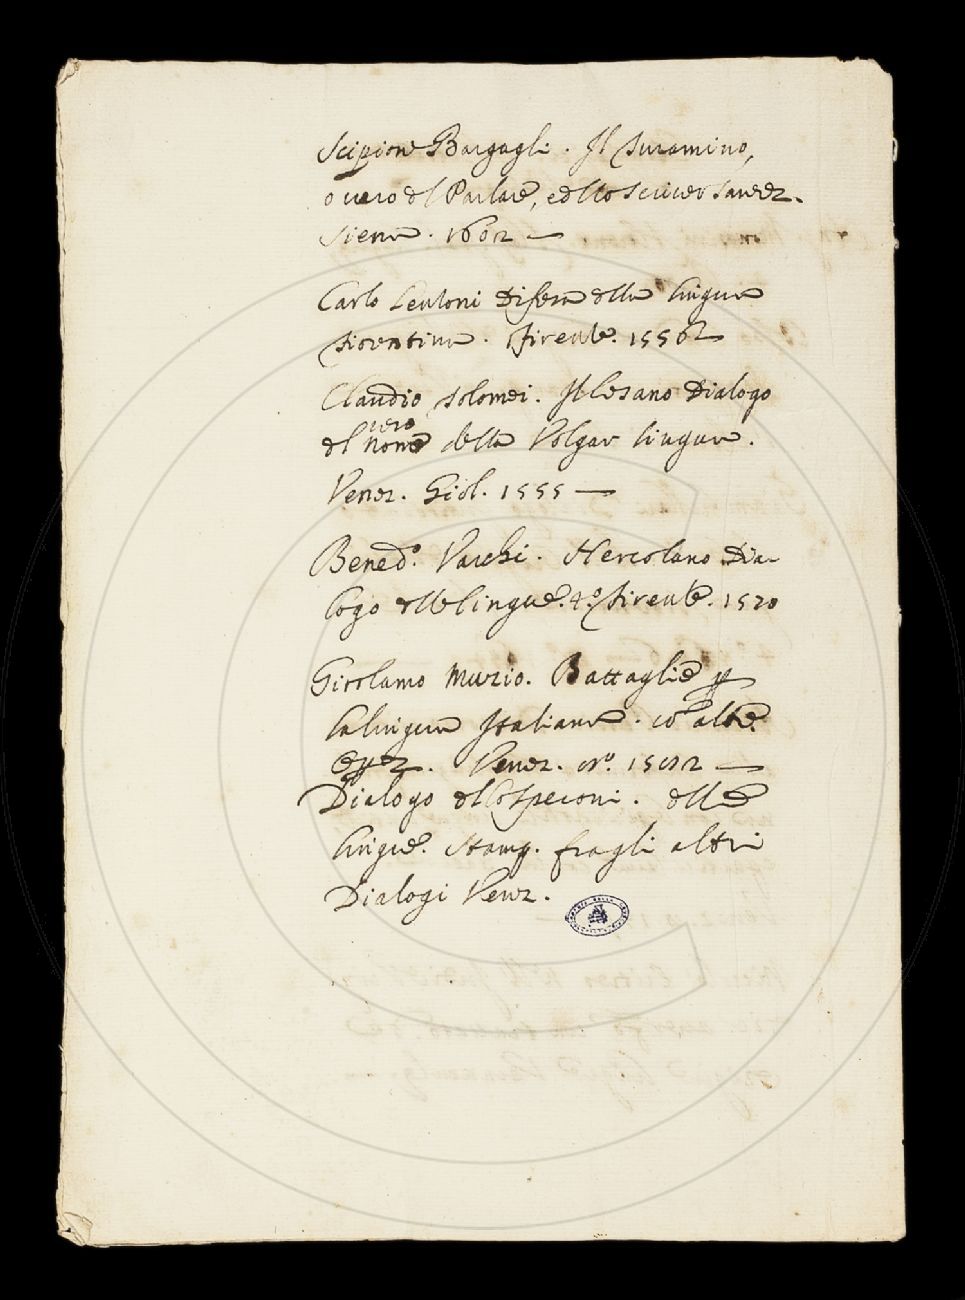 Scipione Bargagli. Il Turamino,
overo del Parlare, e dello scriver sanese.
Siena. 1602 —
Carlo Lentoni Difesa della lingua
fiorentina. Firenze. 1556
Claudio Tolomei. Il Cesano Dialogo
del nome della Volgar lingua.
vero
Venez. Giol. 1555 —
Bened.º Varchi. Hercolano Dia-
logo delle lingue. 4.º Firenze. 1570
Girolamo Muzio. Battaglie p
la lingua Italiana. cō altre
Venez. 1582 —
Dialogo dello Speroni. delle
lingue. Stamp. fra gli altri
Dialogi Venez.